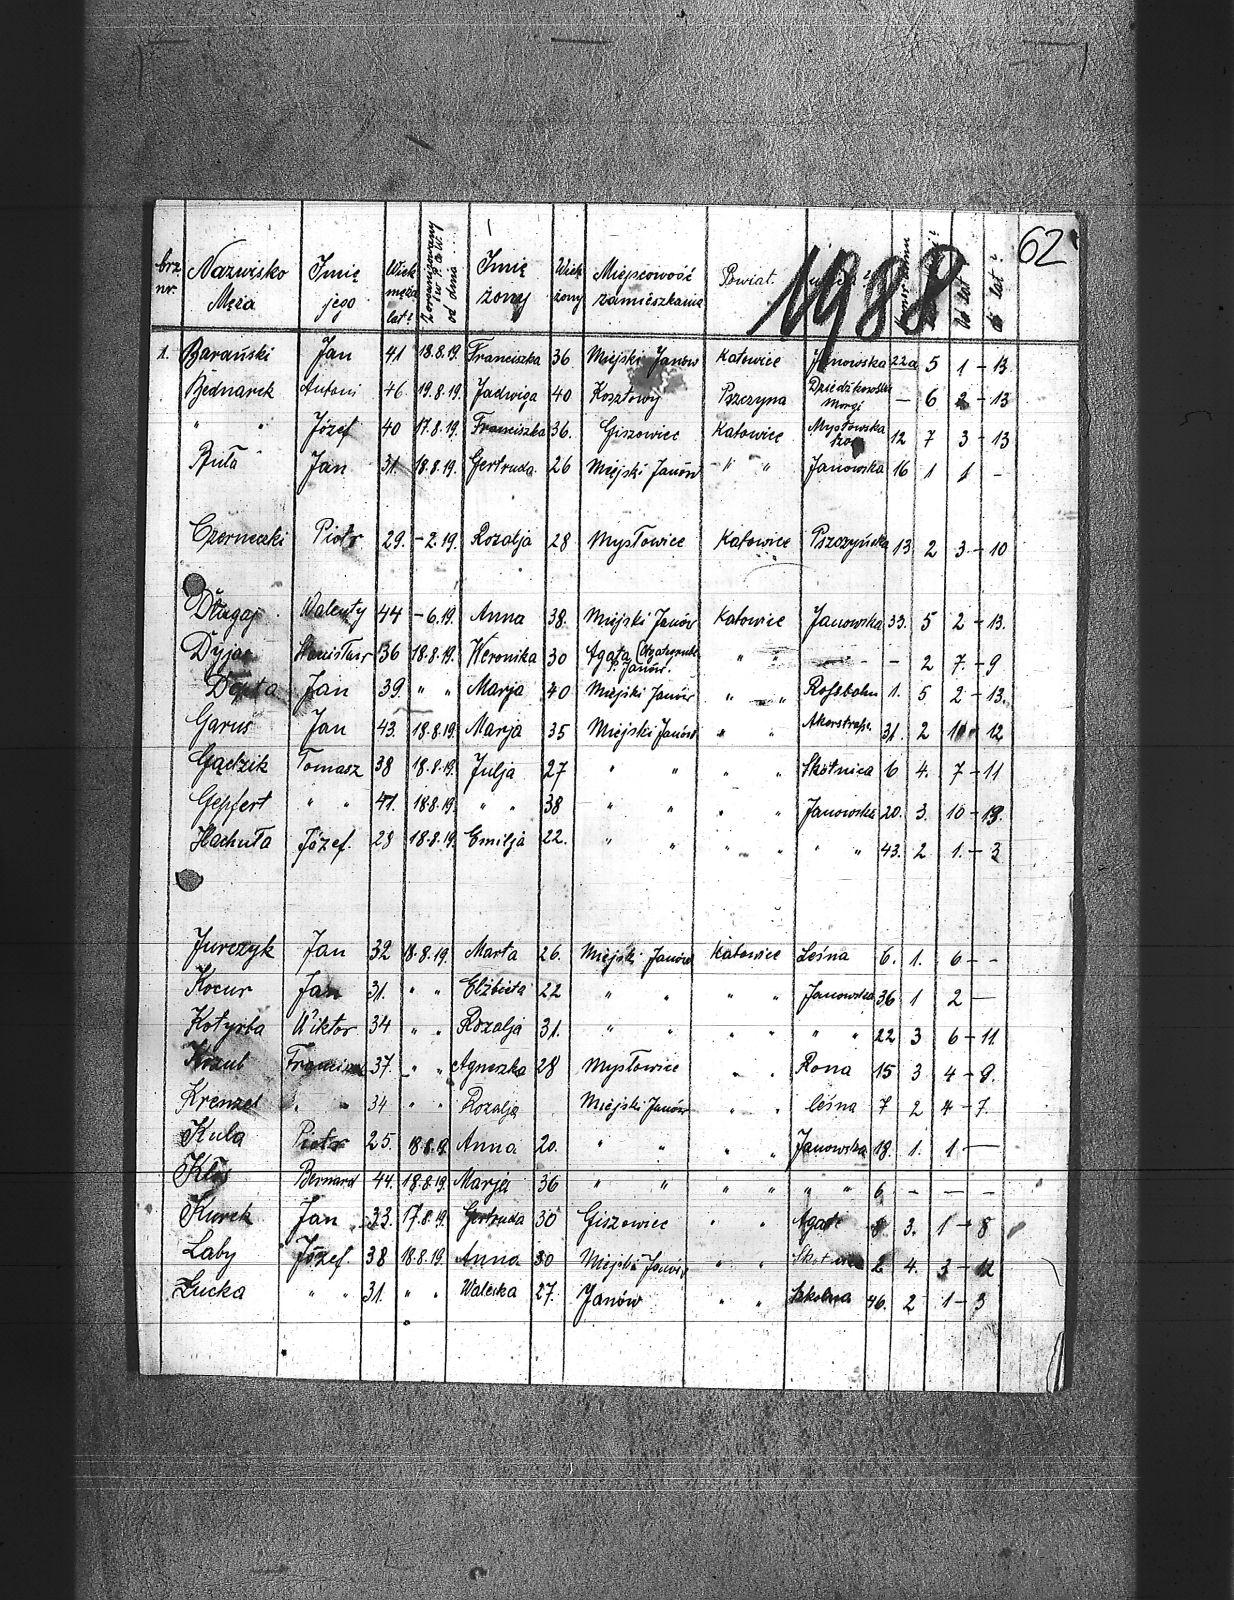 62
1988
brz nr. Nazwisko Męża Imię jego Wiek męża lat? Zorganizowany w P.O.W. od dnia Imię żony Wiek żony Miejscowość zamieszkania Powiat lat? lat?
1. Barański Jan 41 18.8.19. Franciszka 36 Miejski Janów Katowice Janowska 22a 5 1 – 13
Bednarek Antoni 46 19.8.19. Jadwiga 40 Kosztowy Pszczyna Morgi — 6 2 – 13
" " Józef 40 17.8.19. Franciszka 36. Giszowiec Katowice Mysłowska 12 7 3 – 13
Buła Jan 31. 18.8.19. Gertruda 26 Miejski Janów " " Janowska 16 1 1 –
Czernecki Piotr 29. – 2.19. Rozalja 28 Mysłowice Katowice Pszczyńska 13 2 3 – 10
Długaj Walenty 44 – 6.19. Anna 38. Miejski Janów Katowice Janowska 33. 5 2 – 13.
36 18.8.19. Weronika 30 Agata Janów. " " – 2 7. – 9
Jan 39. " " Marja 40 Miejski Janów " " 1. 5. 2 – 13.
Garus Jan 43. 18.8.19. Marja 35 Miejski Janów " " 31. 2 10 – 12
Gądzik Tomasz 38 18.8.19. Julja 27 " " " " Skotnica 6 4. 7 – 11
Gepfert " " 41. 18.8.19. " " 38 " " " " Janowska 20. 3. 10 – 13.
Hachuła Józef. 28 18.8.19. Emilja 22. " " " " " " 43. 2 1. – 3
Jurczyk Jan 32 18.8.19. Marta 26. Miejski Janów Katowice Leśna 6. 1. 6 – –
Kocur Jan 31. " " Elżbieta 22 " " " " Janowska 36 1 2 —
Kotyrba Wiktor 34 " " Rozalja 31. " " " " " " 22 3 6 – 11
Kozub 37. " " Agnieszka 28 Mysłowice " " 15 3 4 – 9.
Krenzel " " 34 " " Rozalja Miejski Janów " " Leśna 7 2 4 – 7.
Kula Piotr 25. 18.8.19. Anna 20. " " " " Janowska 18. 1. 1 —
Kłos Bernard 44. 18.8.19. Marja 36 " " " " " " 6. – — –
Kurek Jan 33. 17.8.19. Gertruda 30 Giszowiec " " 8. 3. 1 – 8
Laby Józef. 38 18.8.19. Anna 30 Miejski Janów " " 2 4. 3 – 12
Łucka " " 31. " " Waleska 27. Janów " " Szkolna 46. 2 1 – 3